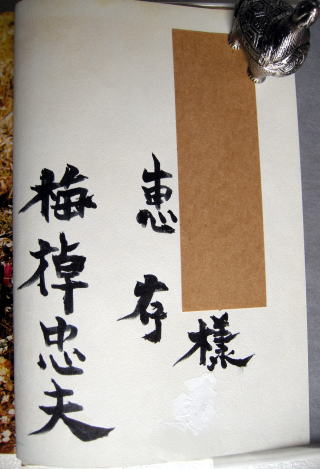 様
恵存
梅棹忠夫